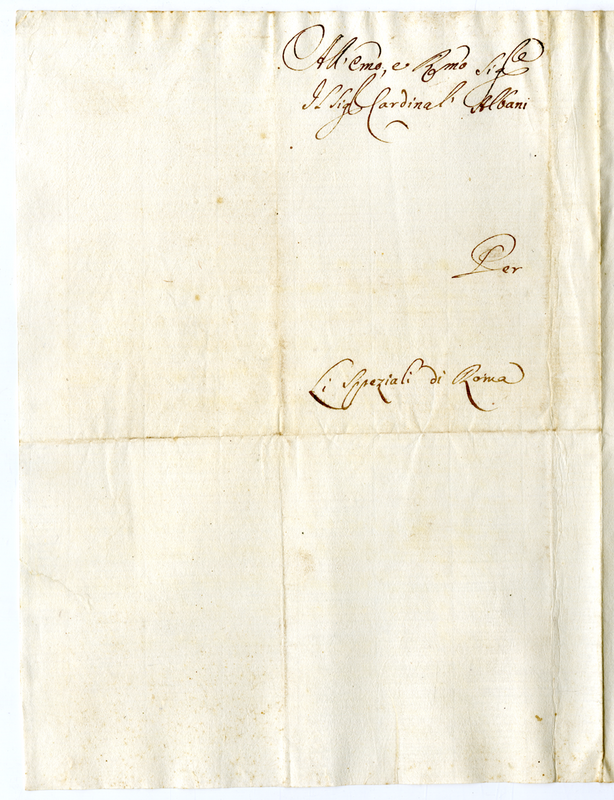 All' Emo, e Rmo Sigre
Il Sigr Cardinal' Albani
Per
Li Speziali di Roma